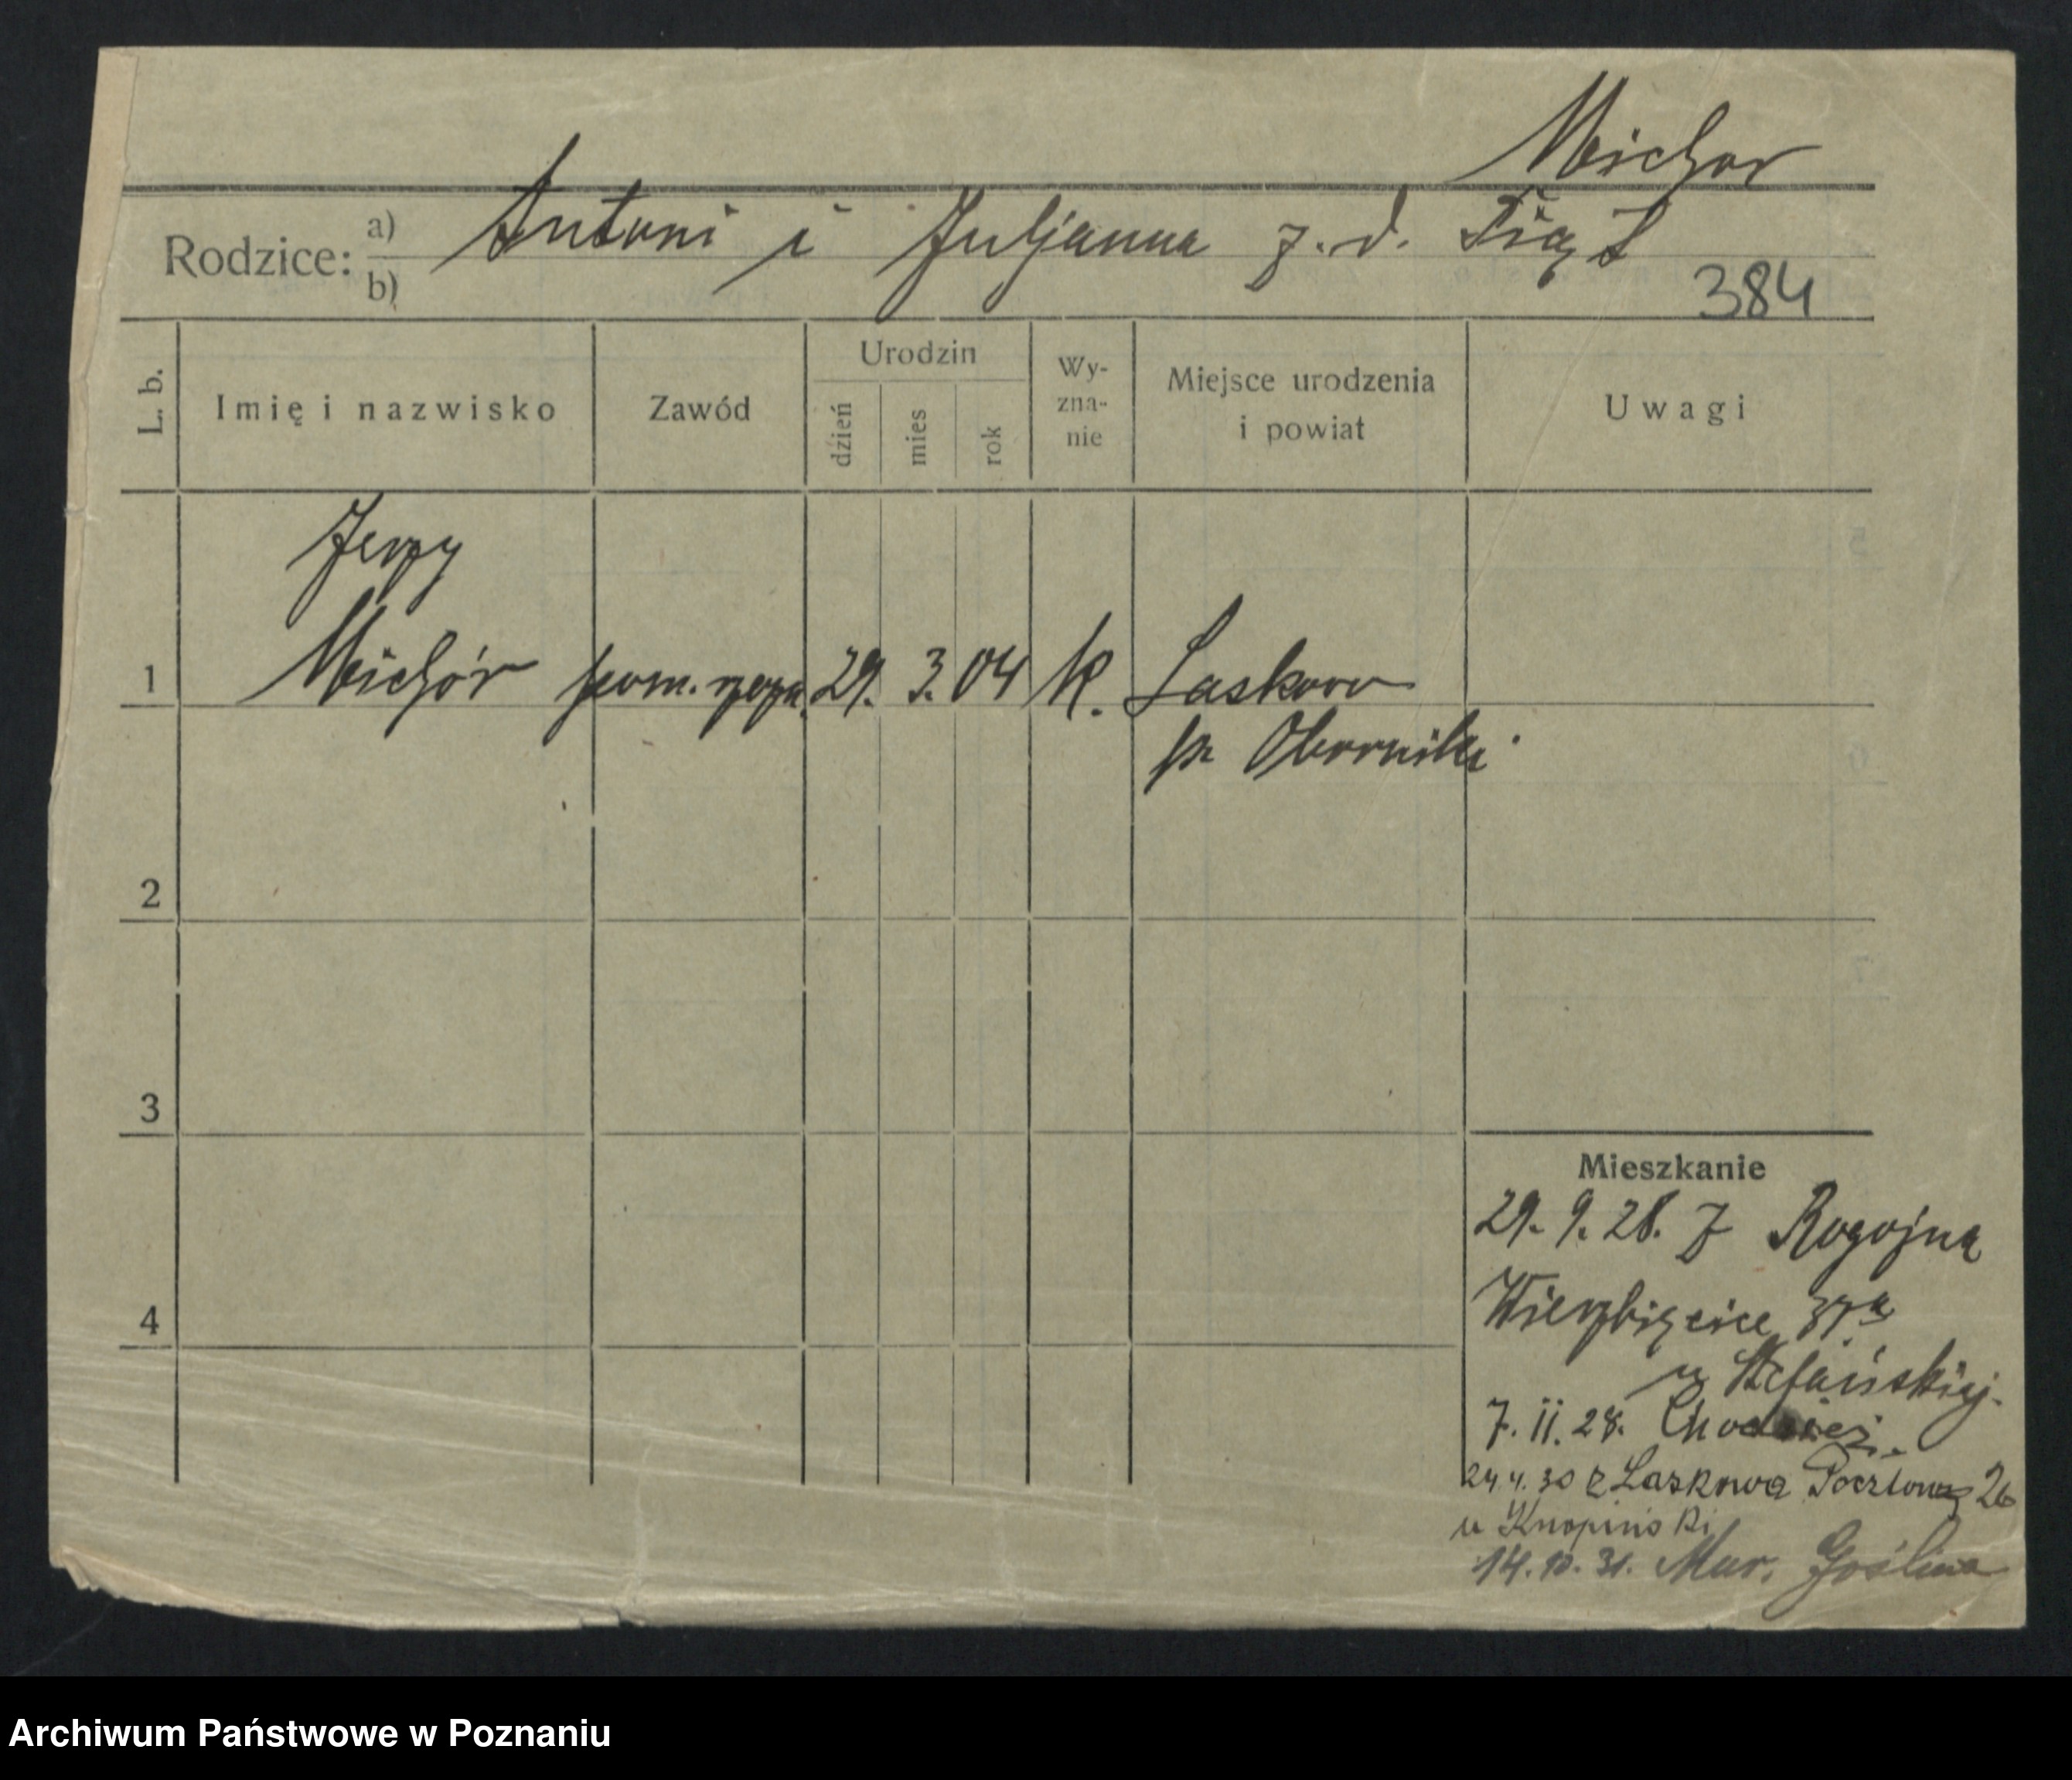 Michor
Rodzice: a) Antoni i Juljanna z. d. Piąt
b)
384
L. b.
Imię i nazwisko
Zawód
Urodzin
dzień
mies
rok
Wy-
zna-
nie
Miejsce urodzenia
i powiat
Uwagi
Jerzy
1 Michór pom. rzeźn. 29. 3. 04 k. Laskowo
p. Oborniki
2
3
4
Mieszkanie
29. 9. 28. z Rogoźna
Wierzbięcice 37a
u Stefańskiej.
7. 11. 28. Chodzież.
24.4.30 z Laskowa Pocztowa 26
u Knopiński
14. 10. 31. Mur. Goślina
Archiwum Państwowe w Poznaniu